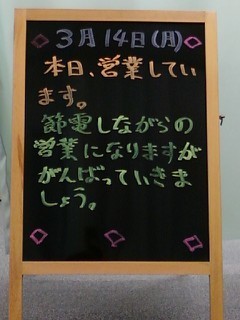 3月14日(月)
本日、営業してい
ます。
節電しながらの
営業になりますが
がんばっていきま
しょう。